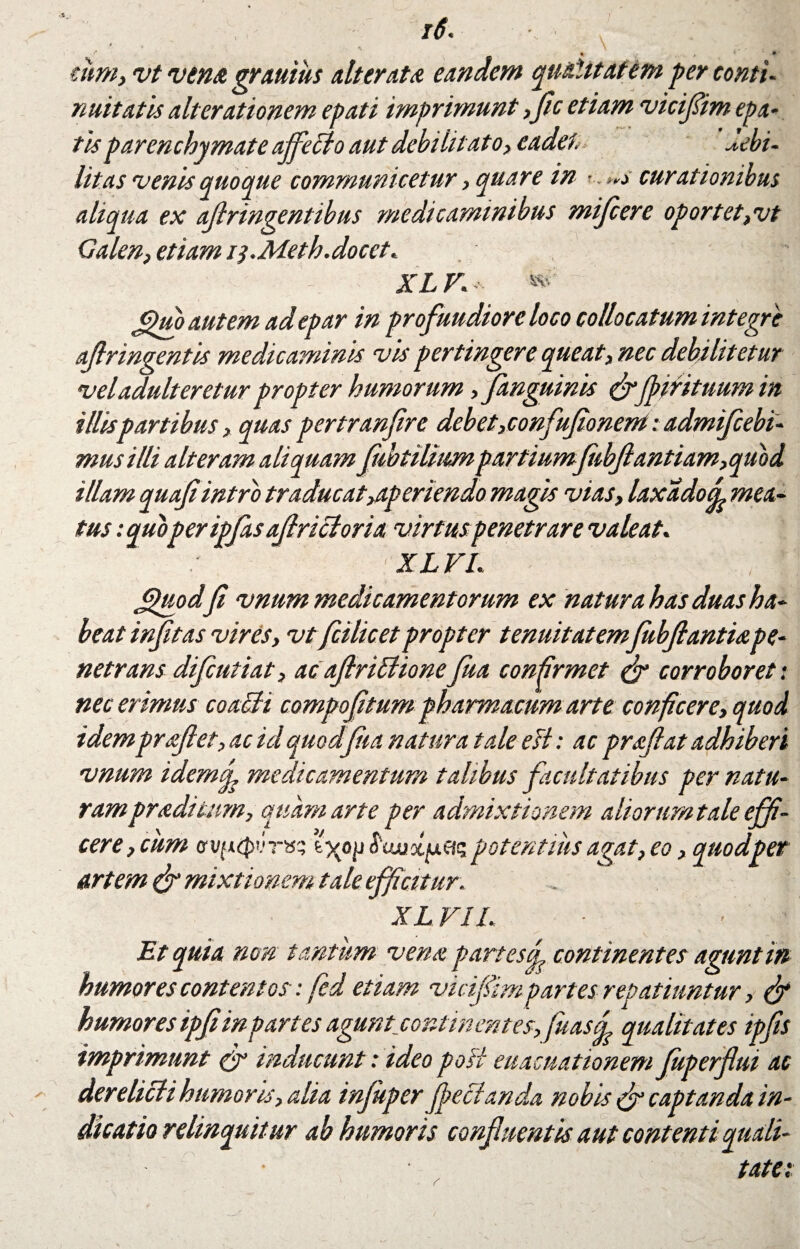 16.
cùm, vt venæ grauiùs alteratæ eandem qualitatem per conti-
nuitatis alterationem epati imprimunt, ſic etiam viciſſim epa-
tis parenchymate affecto aut debilitato, eadē debi-
litas venis quoque communicetur, quare in curationibus
aliqua ex aſtringentibus medicaminibus miſcere oportet, vt
Galen, etiam 13. Meth. docet.
XLV.
Quò autem ad epar in profundiore loco collocatum integrè
aſtringentis medicaminis vis pertingere queat, nec debilitetur
vel adulteretur propter humorum, ſanguinis & ſpirituum in
illis partibus, quas pertranſire debet, confuſionem: admiſcebi-
mus illi alteram aliquam ſubtilium partium ſubſtantiam, quòd
illam quaſi intrò traducat, aperiendo magis vias, laxādoq́ue mea-
tus: quò per ipſas aſtrictoria virtus penetrare valeat.
XLVI.
Quod ſi vnum medicamentorum ex natura has duas ha-
beat inſitas vires, vt ſcilicet propter tenuitatem ſubſtantiæ pe-
netrans diſcutiat, ac aſtrictione ſua confirmet & corroboret:
nec erimus coacti compoſitum pharmacum arte conficere, quod
idem præſtet, ac id quod ſua natura tale eſt: ac præſtat adhiberi
vnum idemq́ue medicamentum talibus facultatibus per natu-
ram præditum, quàm arte per admixtionem aliorum tale effi-
cere, cùm συμφύτȣς ἔχον δυνάμεις potentiùs agat, eo, quod per
artem & mixtionem tale efficitur.
XLVII.
Et quia non tantùm venæ partesq́ue continentes agunt in
humores contentos: ſed etiam viciſſim partes repatiuntur, &
humores ipſi in partes agunt continentes, ſuasq́ue qualitates ipſis
imprimunt & inducunt: ideo poſt euacuationem ſuperflui ac
derelicti humoris, alia inſuper ſpectanda nobis & captanda in-
dicatio relinquitur ab humoris confluentis aut contenti quali-
tate: